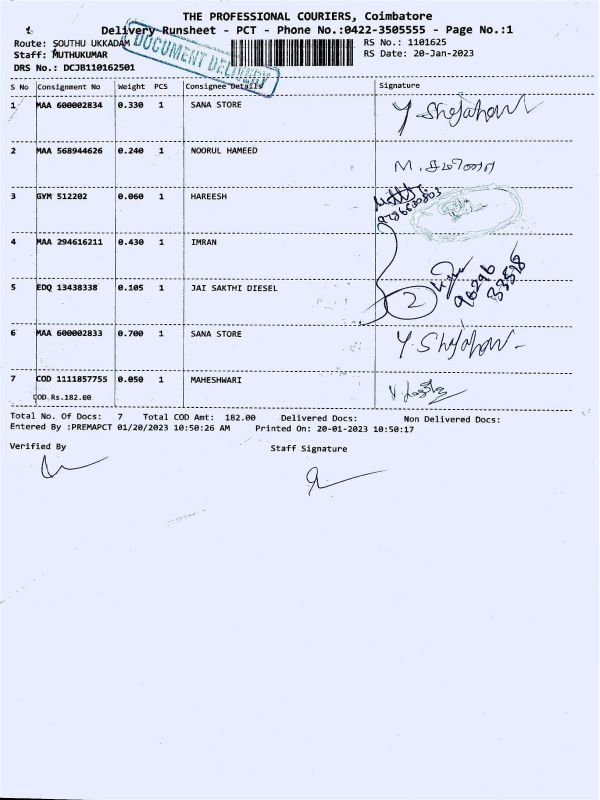 THE PROFESSIONAL COURIERS, Coimbatore
Delivery Runsheet - PCT - Phone No.:0422-3505555 - Page No.:1
Route: SOUTHU UKKADAM
RS No.: 1101625
Staff: MUTHUKUMAR
RS Date: 20-Jan-2023
DRS No.: DCJB110162501
DOCUMENT DELIVERY
S No Consignment No Weight PCS Consignee Details Signature
1 MAA 600002834 0.330 1 SANA STORE Y Shajahan
2 MAA 568944626 0.240 1 NOORUL HAMEED M.
3 GYM 512202 0.060 1 HAREESH
4 MAA 294616211 0.430 1 IMRAN
5 EDQ 13438338 0.105 1 JAI SAKTHI DIESEL 2 96296
33518
6 MAA 600002833 0.700 1 SANA STORE Y. Shajahan
7 COD 1111857755 0.050 1 MAHESHWARI
COD.Rs.182.00
Total No. Of Docs: 7 Total COD Amt: 182.00 Delivered Docs: Non Delivered Docs:
Entered By :PREMAPCT 01/20/2023 10:50:26 AM Printed On: 20-01-2023 10:50:17
Verified By Staff Signature